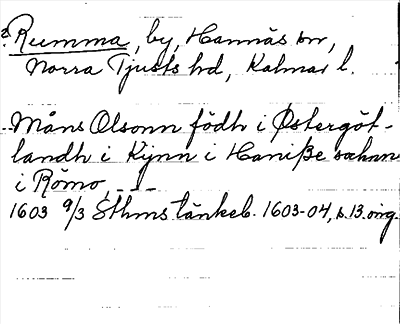 ? Rumma, by, Hannäs sn,
Norra Tjusts hd, Kalmar l.
Måns Olsonn födh i Östergöt-
landh i Kijnn i Haniße sochnn
i Römo, - - -
1603 9/3 Sthms tänkeb. 1603-04, s. 13. orig.